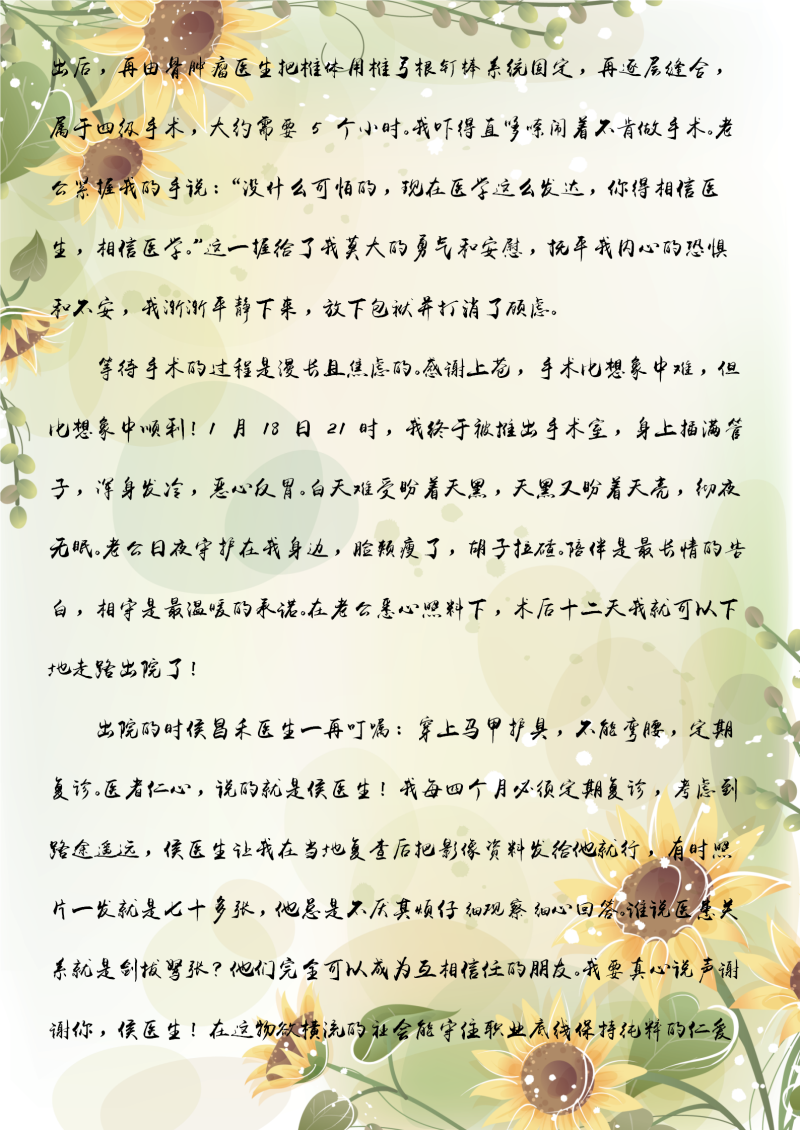 出后，再由骨肿瘤医生把椎体用椎弓根钉棒系统固定，再逐层缝合，
属于四级手术，大约需要 5 个小时。我吓得直哆嗦闹着不肯做手术。老
公紧握我的手说：“没什么可怕的，现在医学这么发达，你得相信医
生，相信医学。”这一握给了我莫大的勇气和安慰，抚平我内心的恐惧
和不安，我渐渐平静下来，放下包袱并打消了顾虑。
等待手术的过程是漫长且焦虑的。感谢上苍，手术比想象中难，但
比想象中顺利！1 月 18 日 21 时，我终于被推出手术室，身上插满管
子，浑身发冷，恶心反胃。白天难受盼着天黑，天黑又盼着天亮，彻夜
无眠。老公日夜守护在我身边，脸颊瘦了，胡子拉碴。陪伴是最长情的告
白，相守是最温暖的承诺。在老公悉心照料下，术后十二天我就可以下
地走路出院了！
出院的时侯昌禾医生一再叮嘱：穿上马甲护具，不能弯腰，定期
复诊。医者仁心，说的就是侯医生！我每四个月必须定期复诊，考虑到
路途遥远，侯医生让我在当地复查后把影像资料发给他就行，有时照
片一发就是七十多张，他总是不厌其烦仔细观察细心回答。谁说医患关
系就是剑拔弩张？他们完全可以成为互相信任的朋友。我要真心说声谢
谢你，侯医生！在这物欲横流的社会能守住职业底线保持纯粹的仁爱